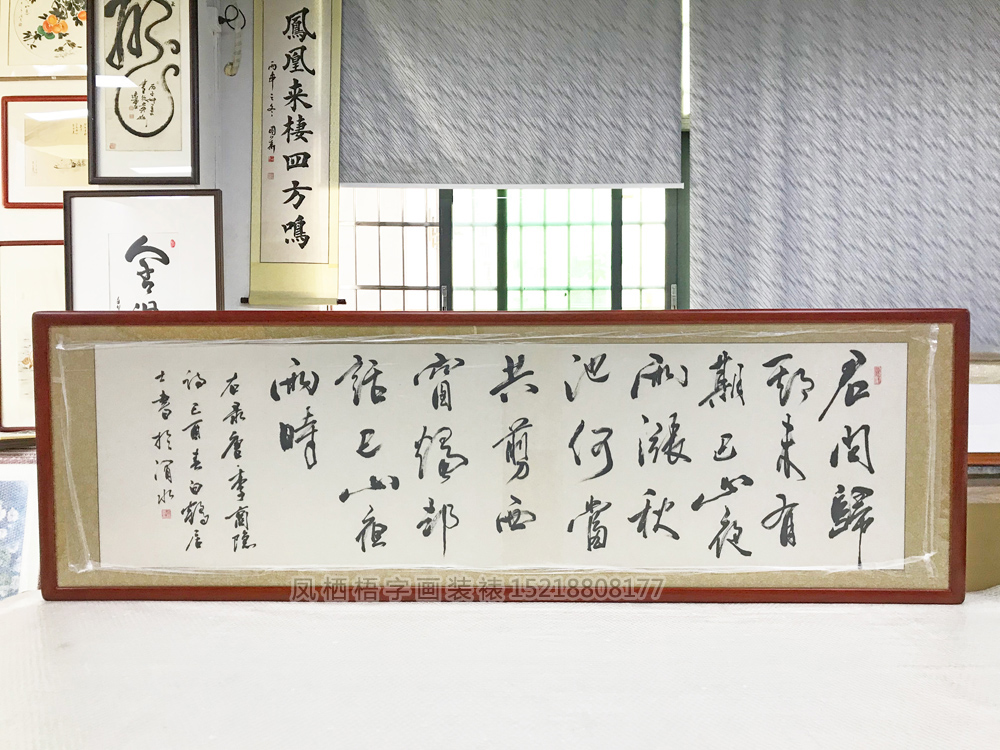 鳳凰来棲四方鳴
君問歸
期未有
期巴山夜
雨漲秋
池何當
共剪西
窗燭却
話巴山夜
雨時
右录唐李商隐
诗己酉春白鶴居
士書於渭水
凤栖梧字画装裱 15218808177